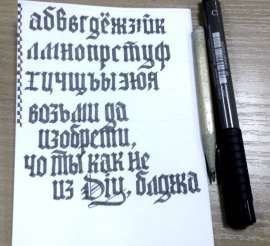 абвгдёжзийк
лмнопрстуф
хцчщъыэюя
возьми да
изобрети,
чо ты как не
из Diy, блджа